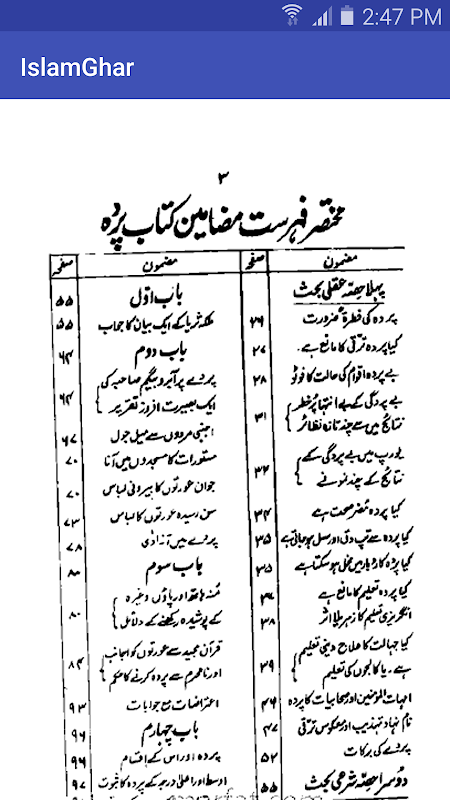 2:47 PM
IslamGhar
۳
مختصر فہرست مضامین کتاب پردہ
مضمون صفحہ مضمون صفحہ
پہلا حصہ عقلی بحث
پردہ کی فطرۃً ضرورت ۲۶
کیا پردہ ترقی کا مانع ہے۔ ۲۷
بے پردہ اقوام کی حالت کا فوٹو ۲۸
بے پردگی کے بے انتہا پُر خطر
نتائج میں سے چند تازہ نظائر ۳۱
یورپ میں بے پردگی کے
نتائج کے چند نمونے ۳۲
کیا پردہ مُضر صحت ہے ۳۴
کیا پردہ سے تپ دق اور سل ہو جاتی ہے ۳۵
کیا پردہ کاروبار میں مخل ہو سکتا ہے ۳۵
کیا پردہ تعلیم کا مانع ہے ۳۶
انگریزی تعلیم کا زہریلا اثر ۳۸
کیا جہالت کا علاج دینی تعلیم
ہے۔ یا کالجوں کی تعلیم ۳۹
امہات المومنین اور صحابیات کا پردہ ۴۶
نام نہاد تہذیب اور معکوس ترقی ۴۷
پردے کی برکات ۵۲
دوسرا حصہ شرعی بحث ۵۵
باب اوّل ۵۵
ملکہ ثریا کے ایک بیان کا جواب ۵۵
باب دوم ۶۴
پردے پر آبرو بیگم صاحبہ کی
ایک بصیرت افروز تقریر ۶۴
اجنبی مردوں سے میل جول ۶۷
مستورات کا مسجدوں میں آنا ۷۰
جوان عورتوں کا بیرونی لباس ۷۰
سن رسیدہ عورتوں کا لباس ۷۳
پردے میں آزادی ۷۸
باب سوم ۸۰
مُنہ ہاتھ اور پاؤں وغیرہ
کے پوشیدہ رکھنے کے دلائل ۸۰
قرآن مجید سے عورتوں کو اجانب
اور نامحرم سے پردہ کرنے کا حکم ۸۴
اعتراضات مع جوابات ۹۳
باب چہارم ۹۶
پردہ اور اس کے اقسام ۹۶
اوسط اور اعلیٰ درجہ کے پردہ کا ثبوت ۹۷